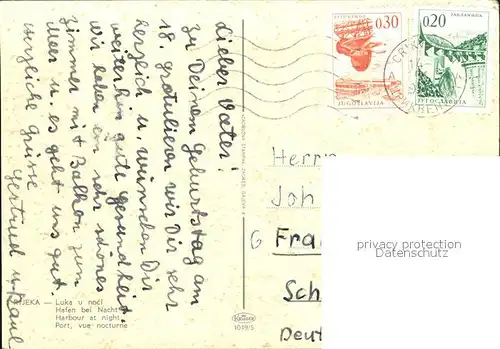 lieber Vater!
zu Deinem Geburtstag am
18. gratulieren wir Dir sehr
herzlich u. wünschen Dir
weiterhin gute Gesundheit.
wir haben ein sehr schönes
Zimmer mit Balkon zum
Meer u. es geht uns gut.
herzliche Grüsse
Gertrud u. Paul
RIJEKA — Luka u noći
Hafen bei Nacht
Harbour at night
Port, vue nocturne
1049/5
0.30
JUGOSLAVIJA
0.20
ЈУГОСЛАВИЈА
Herrn
Joh
G Fran
Sch
Deut
privacy protection
Datenschutz